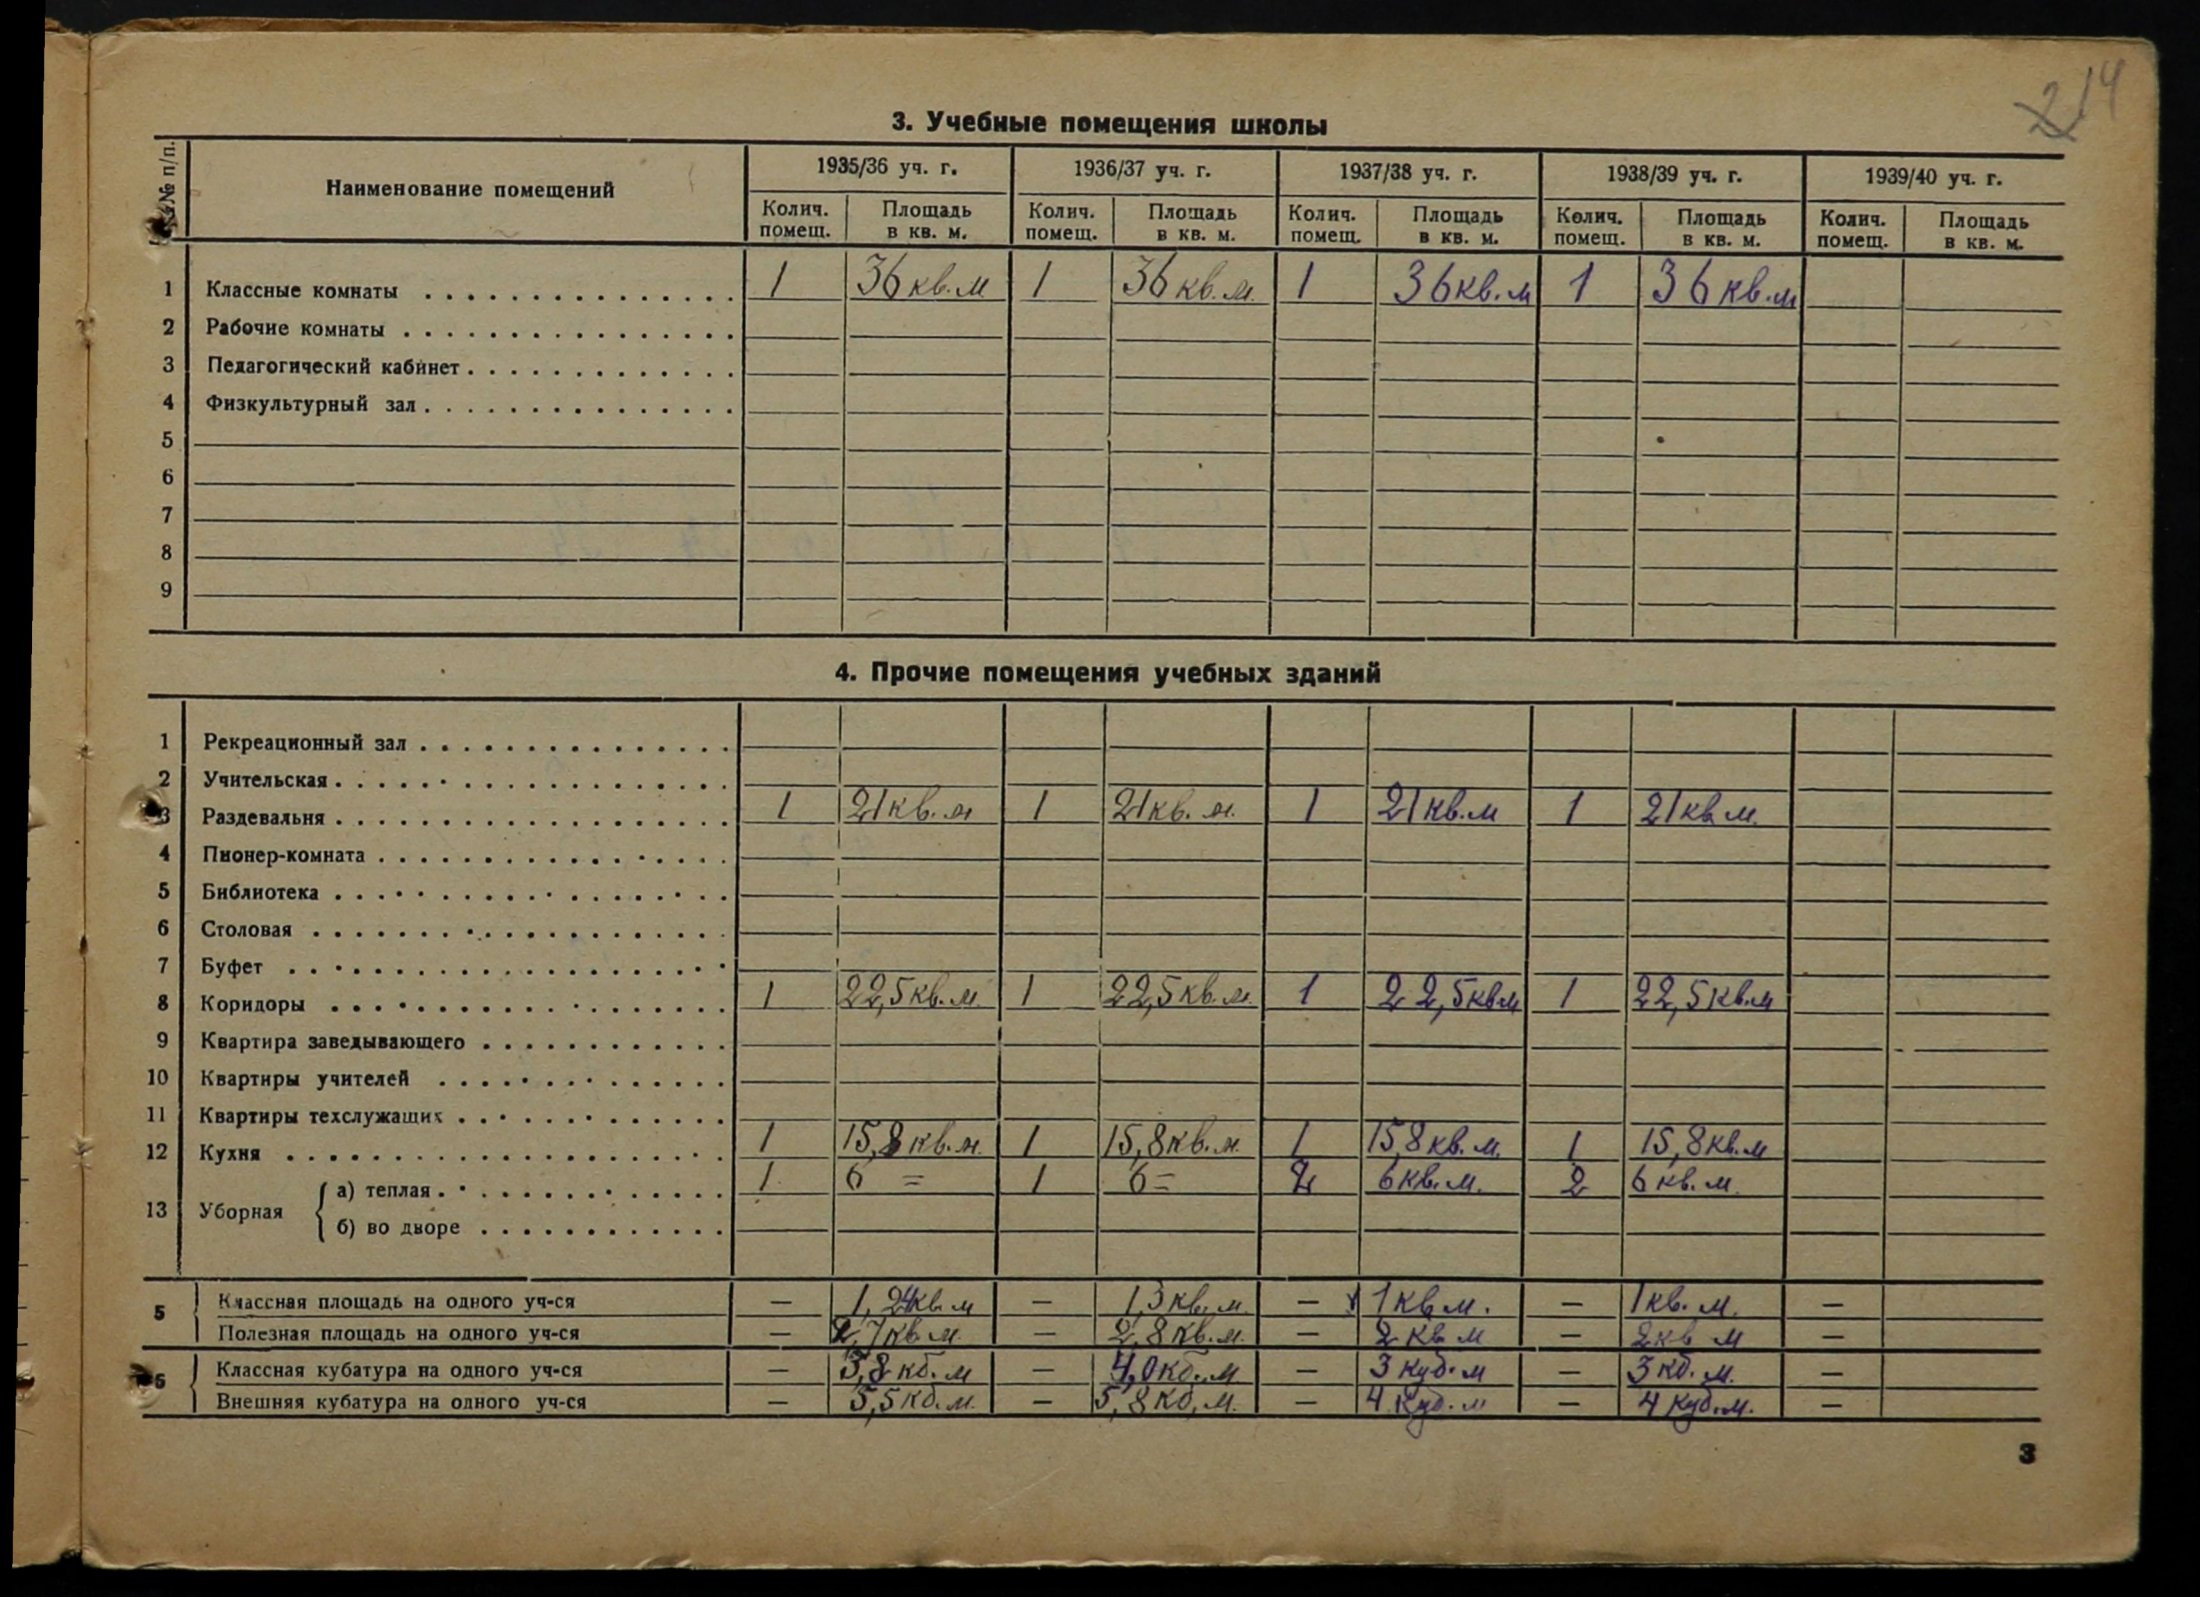 14
3. Учебные помещения школы
№№ п/п. Наименование помещений 1935/36 уч. г. 1936/37 уч. г. 1937/38 уч. г. 1938/39 уч. г. 1939/40 уч. г.
Колич. помещ. Площадь в кв. м. Колич. помещ. Площадь в кв. м. Колич. помещ. Площадь в кв. м. Колич. помещ. Площадь в кв. м. Колич. помещ. Площадь в кв. м.
1 Классные комнаты 1 36 кв. м 1 36 кв. м. 1 36 кв. м 1 36 кв. м
2 Рабочие комнаты
3 Педагогический кабинет
4 Физкультурный зал
5
6
7
8
9
4. Прочие помещения учебных зданий
1 Рекреационный зал
2 Учительская
3 Раздевальня 1 21 кв. м 1 21 кв. м. 1 21 кв. м 1 21 кв м.
4 Пионер-комната
5 Библиотека
6 Столовая
7 Буфет
8 Коридоры 1 22,5 кв. м. 1 22,5 кв. м. 1 22,5 кв м 1 22,5 кв. м
9 Квартира заведывающего
10 Квартиры учителей
11 Квартиры техслужащих
12 Кухня 1 15,8 кв. м. 1 15,8 кв. м. 1 15,8 кв. м. 1 15,8 кв. м
13 Уборная а) теплая 1 6 = 1 6 = 2 6 кв. м. 2 6 кв. м.
б) во дворе
5 Классная площадь на одного уч-ся — 1,24 кв. м — 1,3 кв. м. — 1 кв м. — 1 кв. м. —
Полезная площадь на одного уч-ся — 2,7 кв м. — 2,8 кв. м. — 2 кв м — 2 кв м —
6 Классная кубатура на одного уч-ся — 3,8 кб. м — 4,0 кб. м — 3 куб. м — 3 кб. м. —
Внешняя кубатура на одного уч-ся — 5,5 кб. м. — 5,8 кб. м. — 4 куб. м — 4 куб. м. —
3